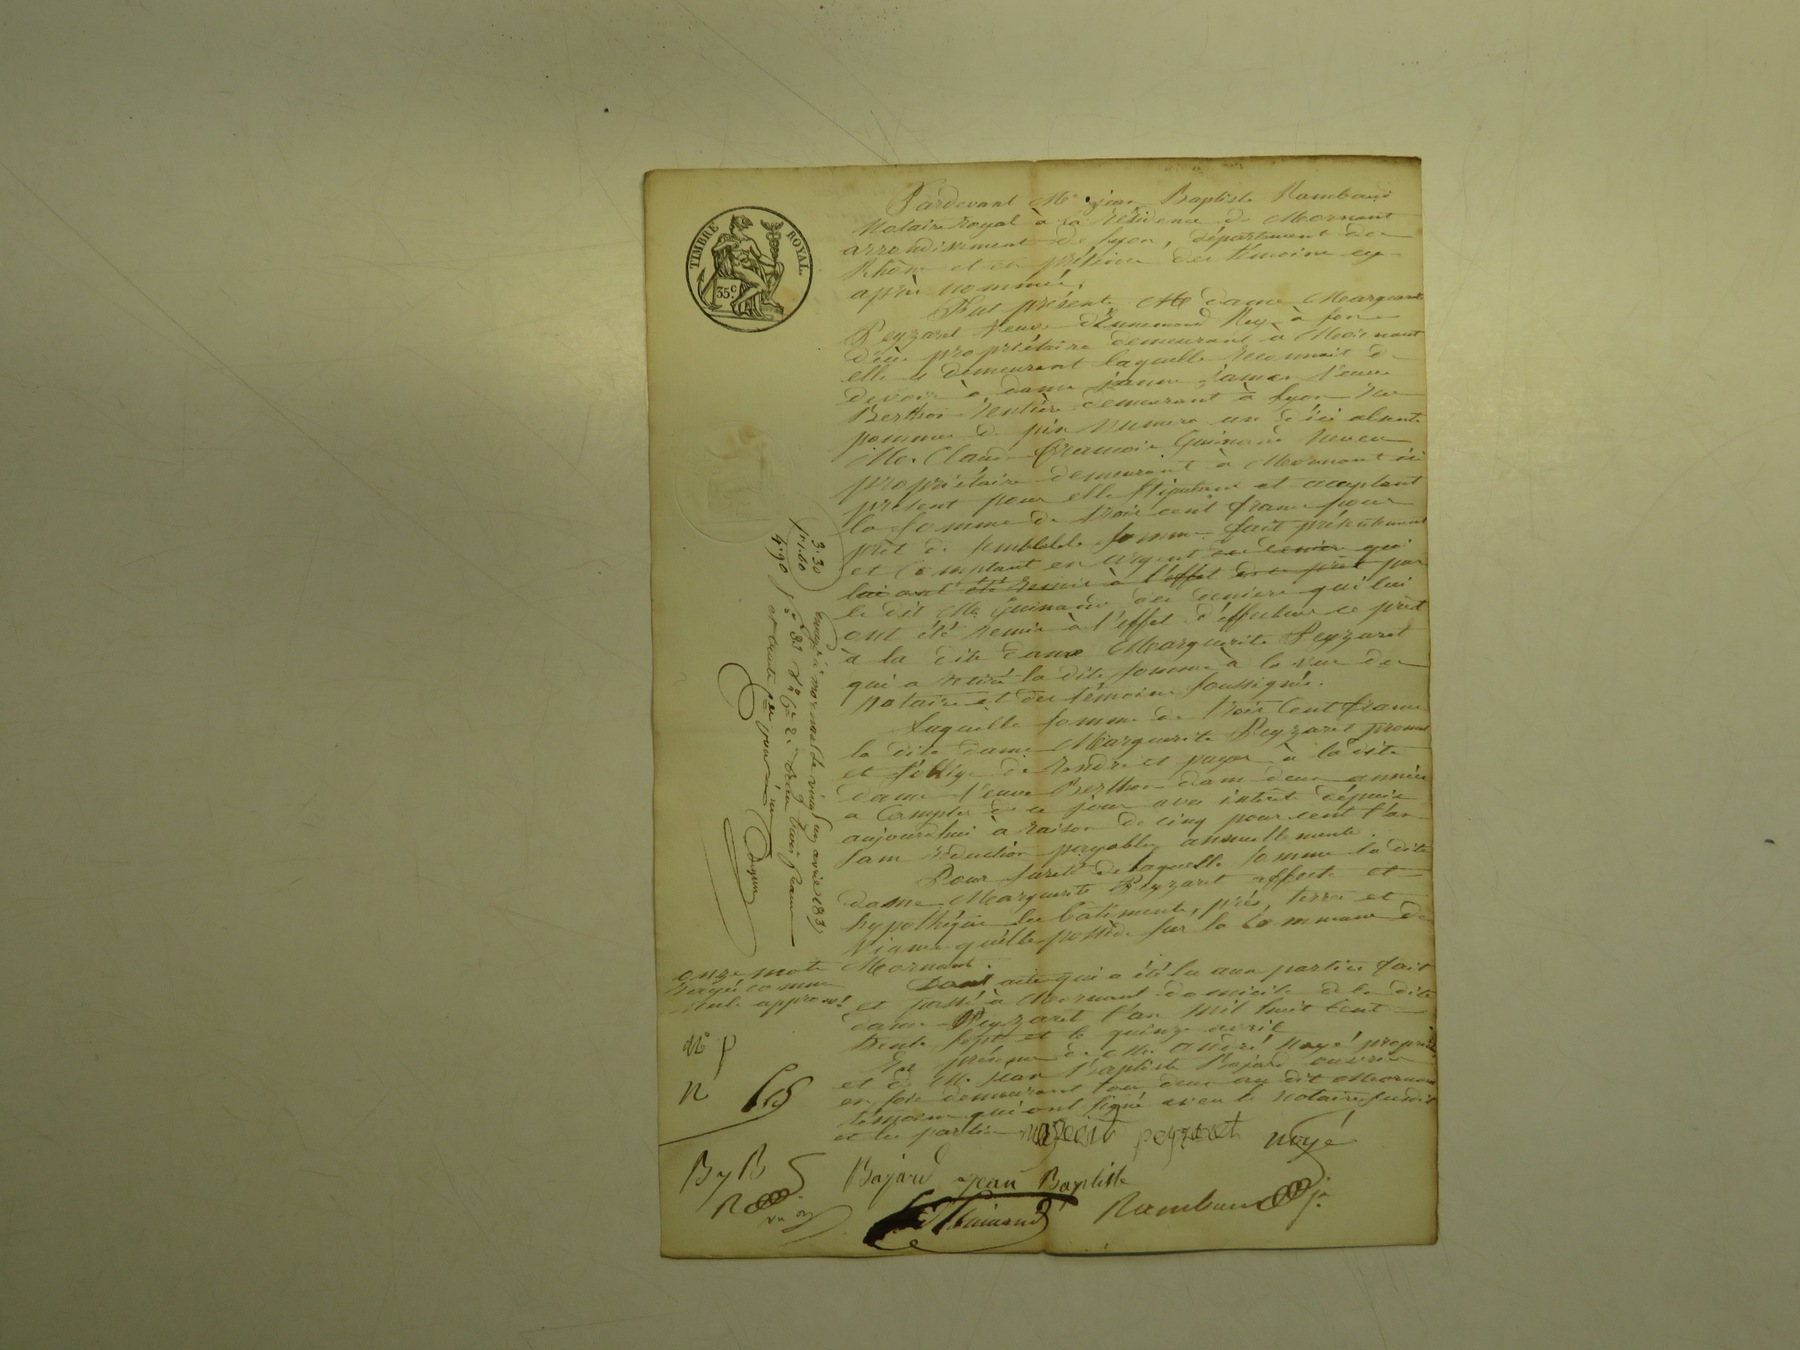 TIMBRE ROYAL
35 c
Pardevant Me jean Baptiste Rambaud
Notaire royal à la résidence de Mornant
arrondissement de Lyon, département du
Rhône et en présence des témoins cy-
après nommés,
Fut présente Me dame Marguerite
Peyzaret Veuve d'Ennemond Rey, à son
décès propriétaire demeurant à Mornant
elle y demeurant laquelle reconnait
devoir à dame jeanne veuve
Berthon rentière demeurant à Lyon rue
pomme de pin Numero un d'ici absente
Me. Claude Guinand neveu
propriétaire demeurant à Mornant ici
présent pour elle stipulant et acceptant
la somme de trois cent francs pour
prêt de semblable somme fait présentement
et comptant en argent des deniers qui
lui ont été remis à l'effet de ce prêt par
le dit Me Guinand des deniers qui lui
ont été remis à l'effet d'effectuer ce prêt
à la dite dame Marguerite Peyzaret
qui a retiré la dite somme à la vue du
notaire et des témoins soussignés.
Laquelle somme de trois cent francs
la dite dame Marguerite Peyzaret promet
et s'oblige de rendre et payer à la dite
dame veuve Berthon dans deux années
a compter de ce jour avec intérêt depuis
aujourdhui à raison de cinq pour cent l'an
sans réduction payables annuellement.
Pour sureté de laquelle somme la dite
dame Marguerite Peyzaret affecte et
hypothèque les bâtiments, prés, terres et
vignes qu'elle possède sur la Commune de
Mornant.
Dont acte qui a été lu aux parties fait
et passé à Mornant domicile de la dite
dame Peyzaret l'an mil huit cent
trente sept et le quinze avril
En présence de Me. andré Noyé propriétaire
et de M. Jean Baptiste Bajard ouvrier
en soie demeurant tous deux au dit Mornant
témoins qui ont signé avec le notaire susdit
et les parties
peyzaret noyé
Bajard jean Baptiste
Guinand Rambaud jne
3.30
4.90
onze mots
rayés comme
nuls approuvés
M P
N
B j B
R